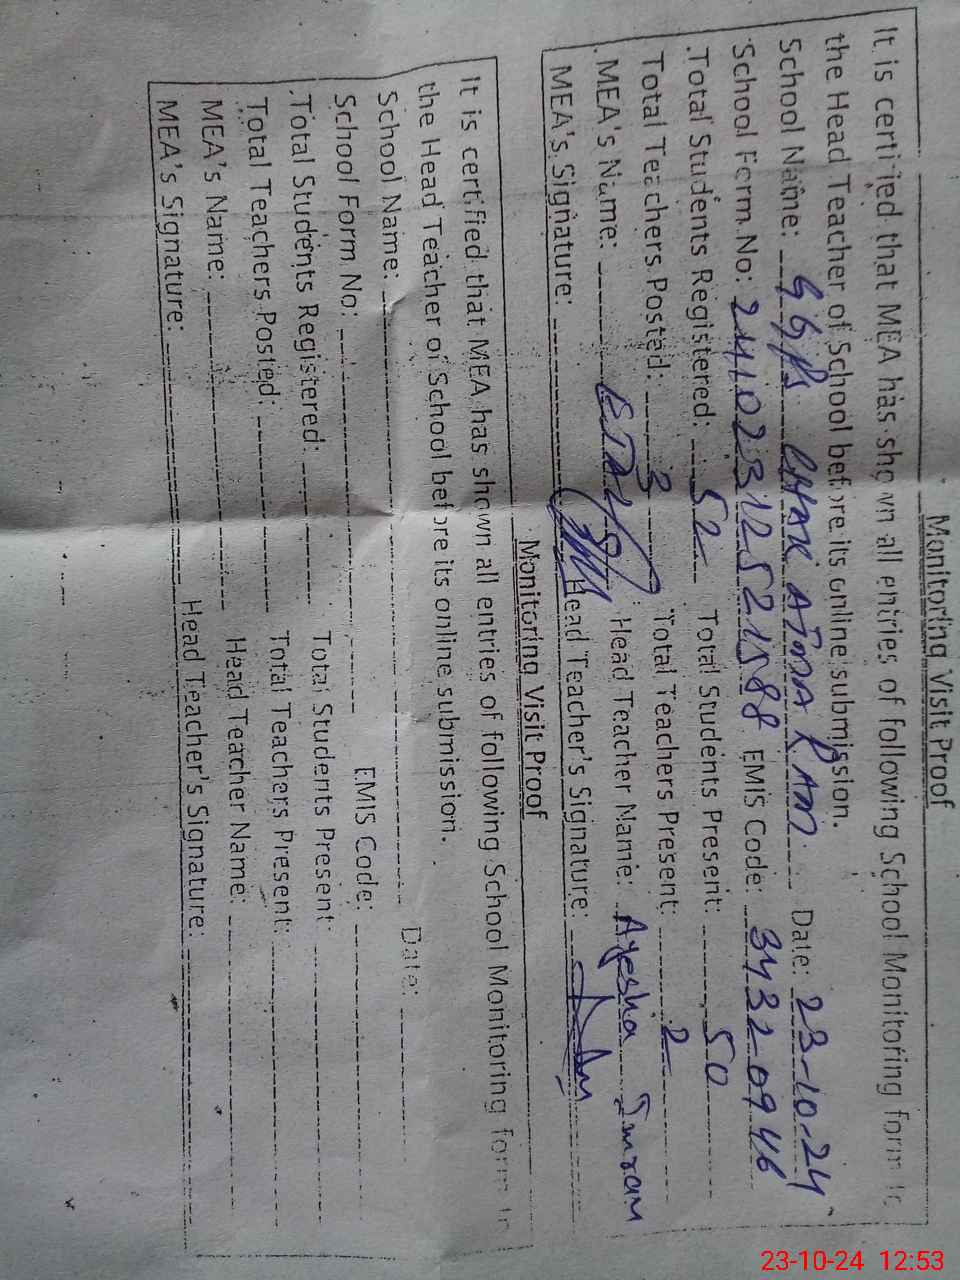 Monitoring Visit Proof
It is certified that MEA has shown all entries of following School Monitoring form to
the Head Teacher of School before its online submission.
School Name: GGPS CHAK ATMA RAM Date: 23-10-24
School Form No: 24102312521588 EMIS Code: 34320946
Total Students Registered: 52 Total Students Present: 50
Total Teachers Posted: 3 Total Teachers Present: 2
MEA's Name: Head Teacher Name: Ayesha Imran
MEA's Signature: Head Teacher's Signature:
Monitoring Visit Proof
It is certified that MEA has shown all entries of following School Monitoring form to
the Head Teacher of School before its online submission.
School Name: Date:
School Form No: EMIS Code:
Total Students Registered: Total Students Present:
Total Teachers Posted: Total Teachers Present:
MEA's Name: Head Teacher Name:
MEA's Signature: Head Teacher's Signature:
23-10-24 12:53